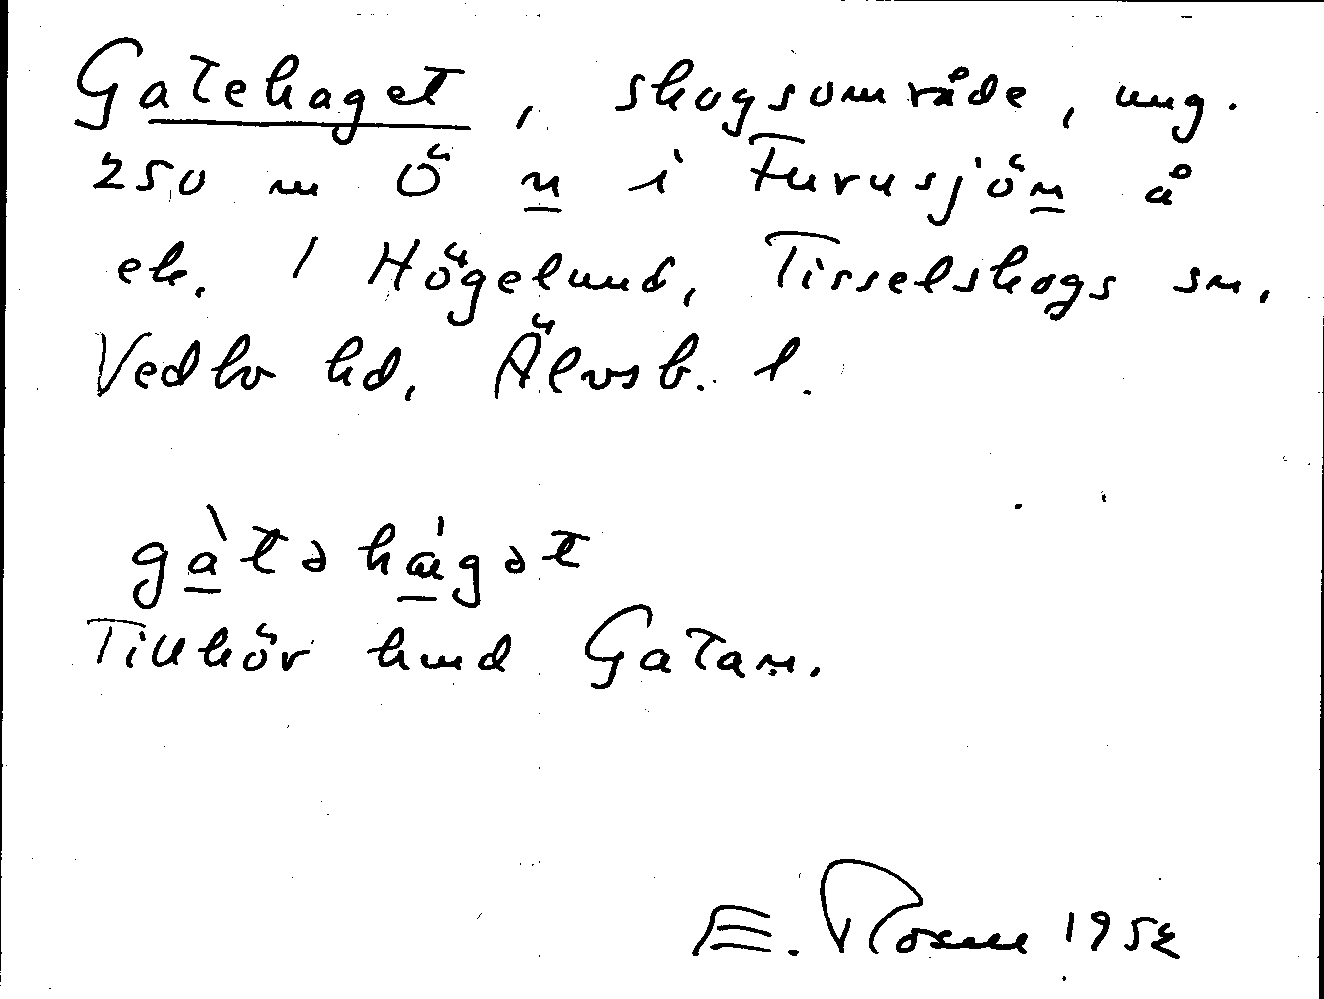 Gatehaget, skogsområde, ung.
250 m Ö n i Furusjön å
ek. 1 Högelund, Tisselskogs sn,
Vedbo hd, Älvsb. l.
gàtəhágət
Tillhör hmd Gatan.
E. Rosell 1952